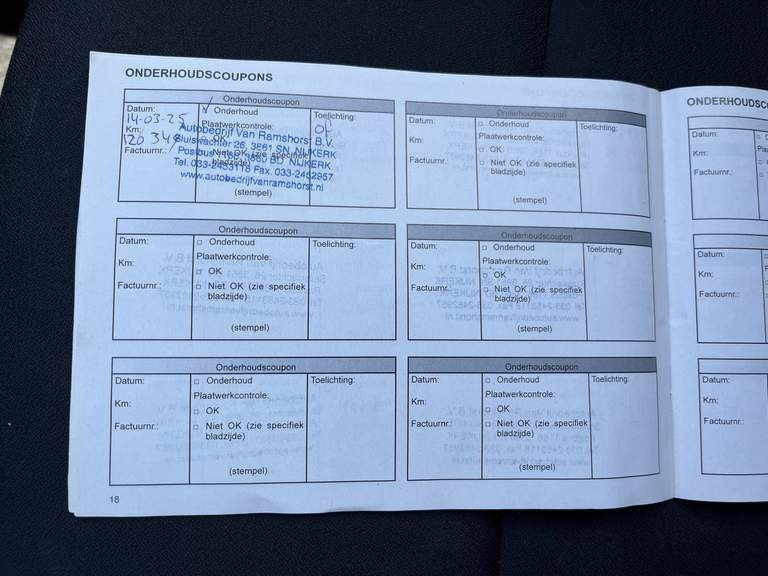 ONDERHOUDSCOUPONS
Onderhoudscoupon
Datum:
14-03-25
Km:
120 348
Factuurnr.:
Onderhoud
Plaatwerkcontrole:
OK
Niet OK (zie specifiek
bladzijde)
(stempel)
Toelichting:
Autobedrijf Van Ramshorst B.V.
Sluiswachter 26, 3861 SN NIJKERK
Postbus 1168, 3860 BD NIJKERK
Tel. 033-2463118 Fax. 033-2462957
www.autobedrijfvanramshorst.nl
Onderhoudscoupon
Datum:
Km:
Factuurnr.:
Onderhoud
Plaatwerkcontrole:
OK
Niet OK (zie specifiek
bladzijde)
(stempel)
Toelichting:
Onderhoudscoupon
Datum:
Km:
Factuurnr.:
Onderhoud
Plaatwerkcontrole:
OK
Niet OK (zie specifiek
bladzijde)
(stempel)
Toelichting:
Onderhoudscoupon
Datum:
Km:
Factuurnr.:
Onderhoud
Plaatwerkcontrole:
OK
Niet OK (zie specifiek
bladzijde)
(stempel)
Toelichting:
Onderhoudscoupon
Datum:
Km:
Factuurnr.:
Onderhoud
Plaatwerkcontrole:
OK
Niet OK (zie specifiek
bladzijde)
(stempel)
Toelichting:
Onderhoudscoupon
Datum:
Km:
Factuurnr.:
Onderhoud
Plaatwerkcontrole:
OK
Niet OK (zie specifiek
bladzijde)
(stempel)
Toelichting:
18
ONDERHOUDSC
Datum:
Km:
Factuurnr.:
Datum:
Km:
Factuurnr.:
Datum:
Km:
Factuurnr.: